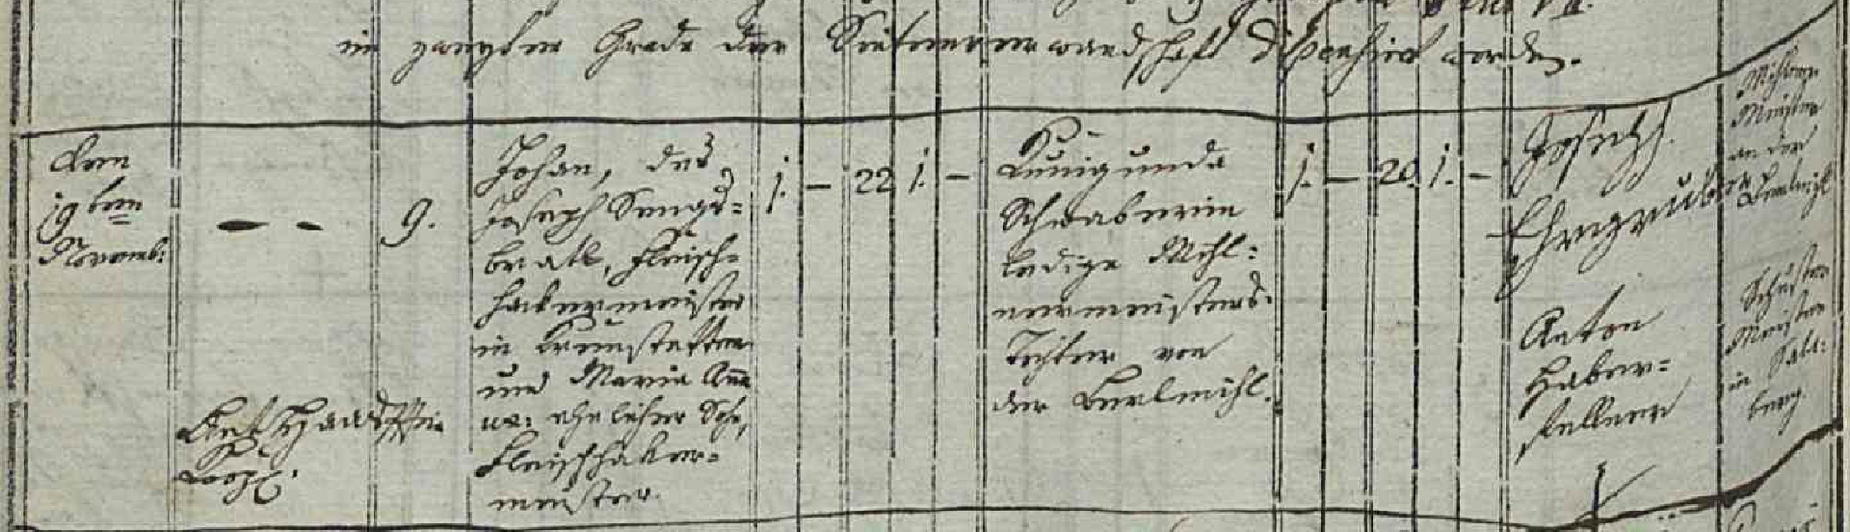 im zweyten Grade der Seitenverwandschaft dispensirt worden.
Den
19ten
Novemb:
– –
9.
Johan, des
Joseph Sengs=
bratl, Fleisch=
hakermeister
in Braunstetten
und Maria Ana
ux: ehelicher Sohn,
Fleischhaker=
meister.
1. – 22 1. –
Kunigunda
Schwaberin
ledige Mühl=
nermeisters
Tochter von
der Berlmühl.
1. – 20. 1. –
Joseph
Ehrngruber
Anton
Haber=
fellner
Mühler
Meister
an der
Schuster
Meister
in
berg.